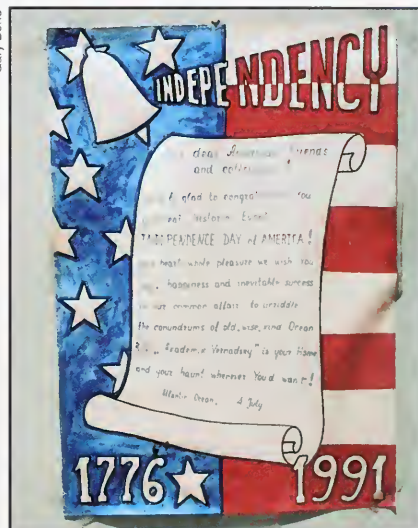 INDEPENDENCY
dear American friends
and
glad to congra You
Event
INDEPENDENCE DAY of AMERICA!
heart whole pleasure we wish You
happiness and inevitable success
our common affair to unriddle
the conundrums of old, wise, kind Ocean
"Academic Vernadsky" is your Home
and your haunt wherever You'd want!
Atlantic Ocean, 4 July
1776 1991